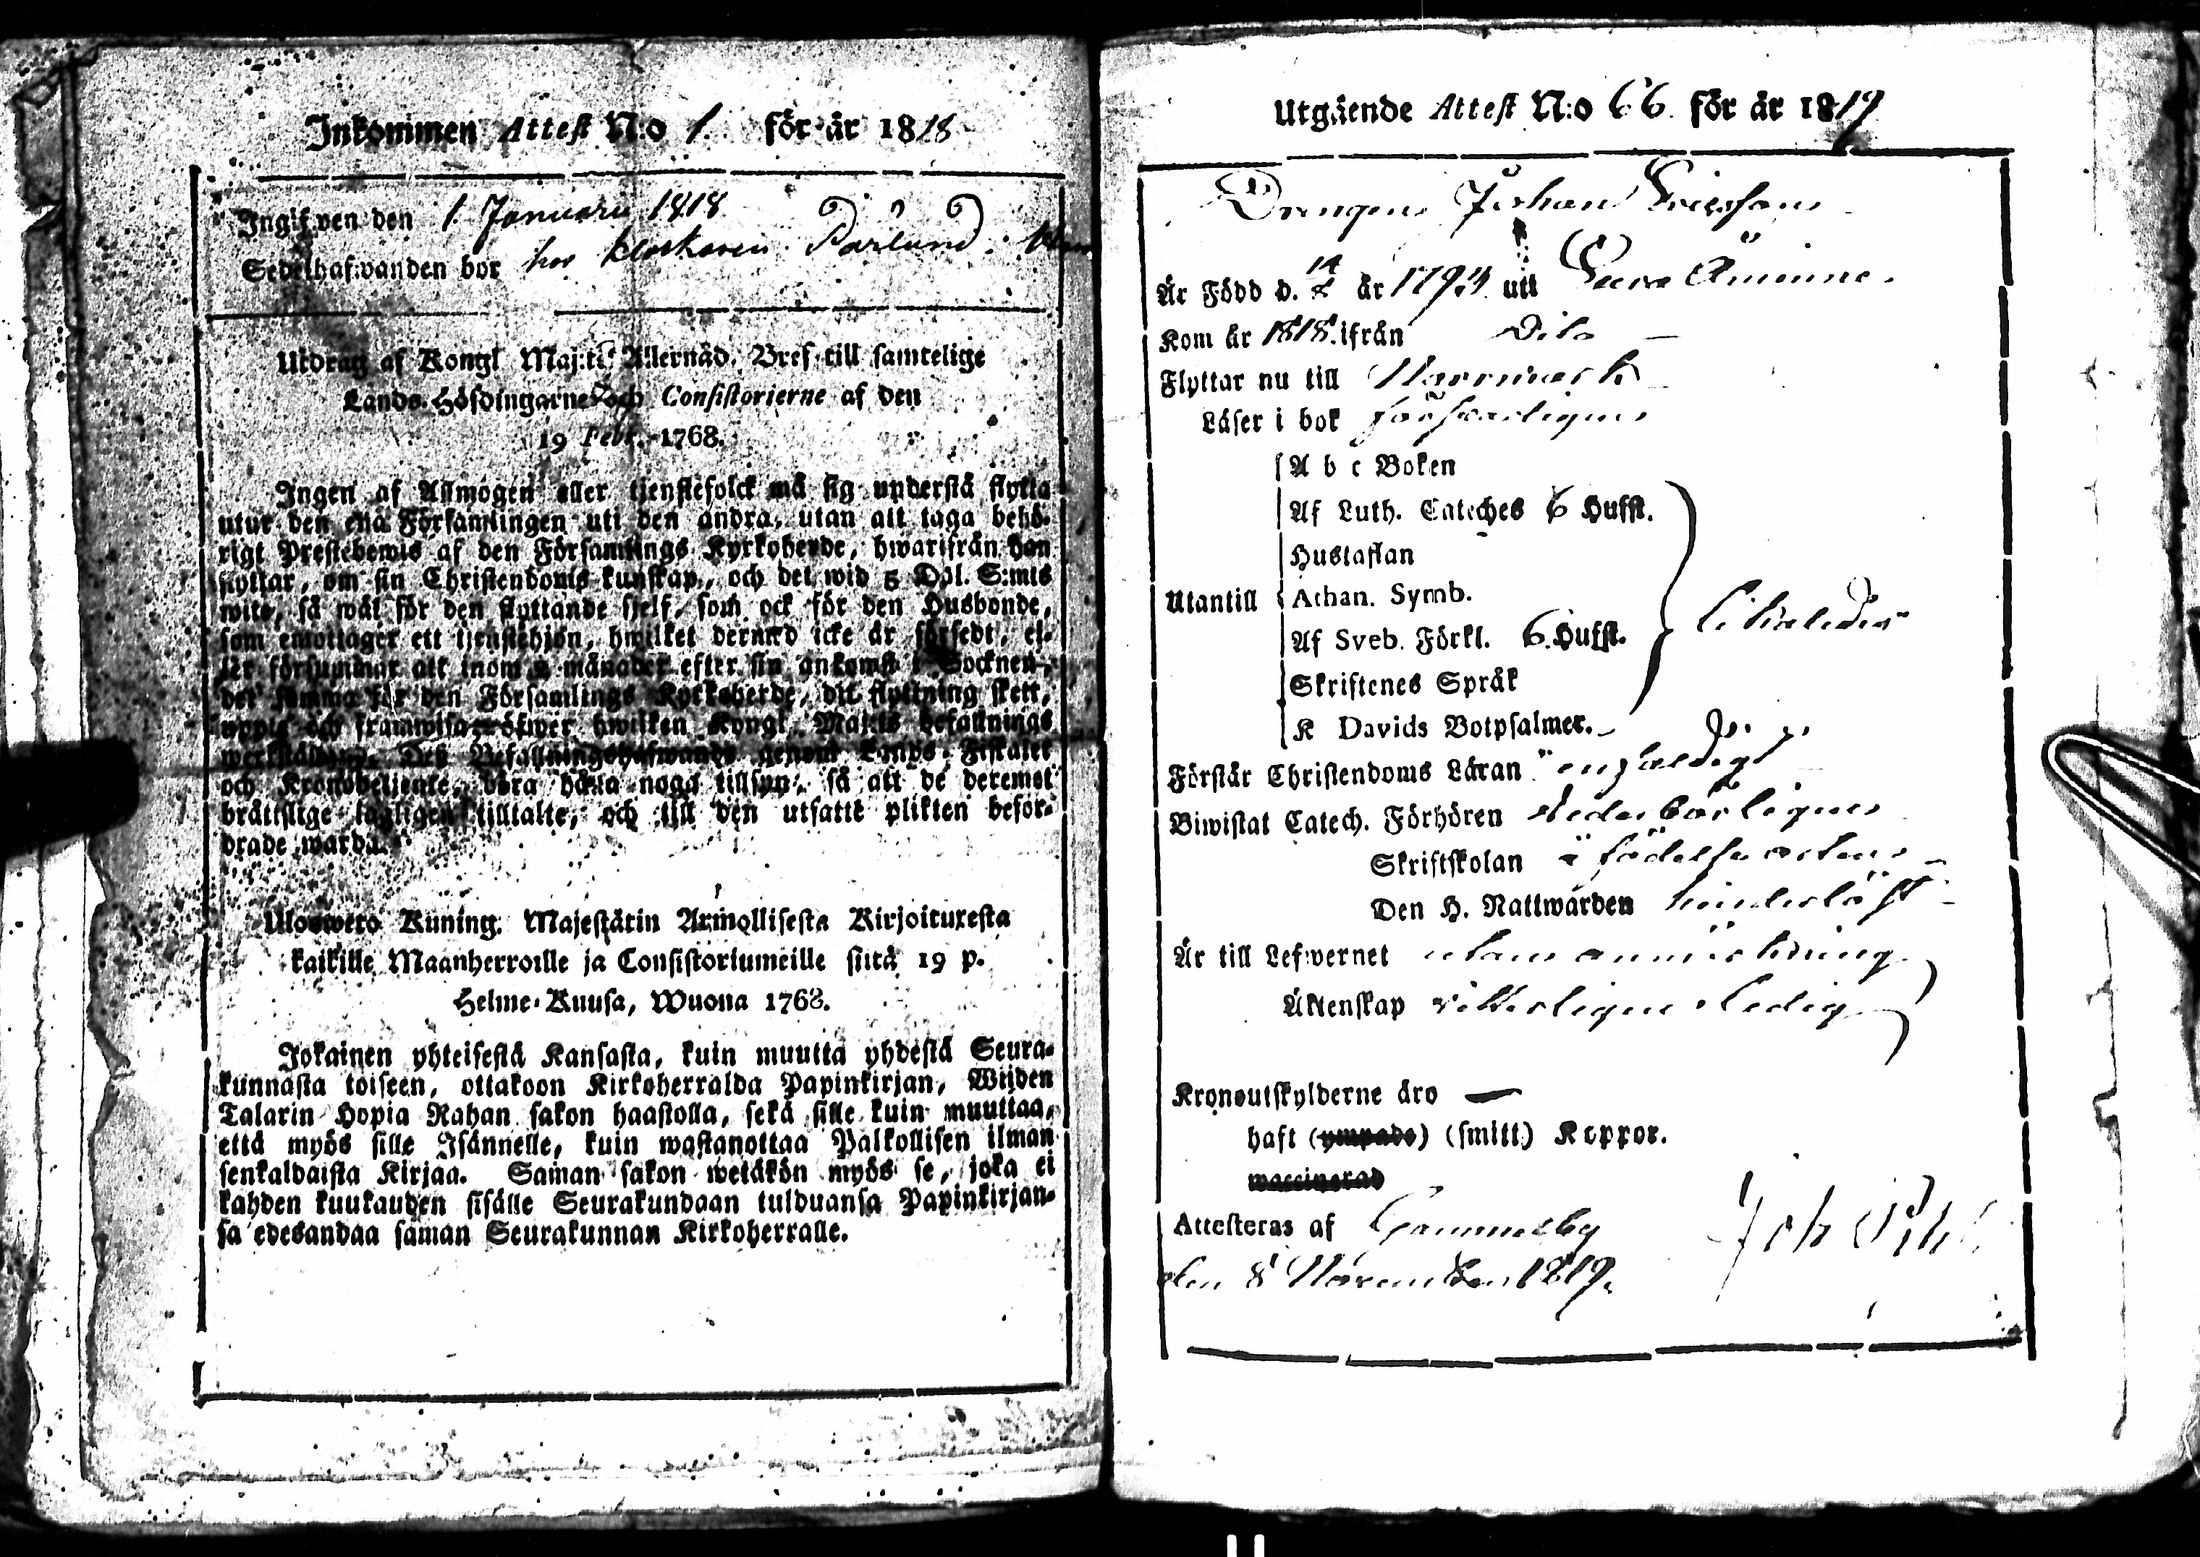 Inkommen Attest N:o 1. för år 1818
Ingifven den 1. Januarii 1818
Sedelhafwanden bor hos klockaren Parlund.
Utdrag af Kongl Maj:ts Allernåd. Bref till samtelige
Lands-Höfdingarne och Consistorierne af den
19 Febr. 1768.
Ingen af Allmogen eller tjenstefolck må sig understå flytta
utur den ena Församlingen uti den andra, utan att taga behö-
rigt Prestebewis af den Församlings Kyrkoherde, hwarifrån han
flyttar, om sin Christendoms kunskap, och det wid 5 Dal. S:mts
wite, så wäl för den flyttande sjelf, som ock för den Husbonde,
som emottager ett tjenstehjon, hwilket dermed icke är försedt, el-
ler försummar att inom 2 månader efter sin ankomst i Socknen,
det samma för den Församlings Kyrkoherde, dit flyttning skett,
uppte och framwisa, öfwer hwilken Kongl. Maj:ts befallnings
werkställande, Deß Befallningshafwande genom Lands-Fiskaler
och Kronobetjente, böra hålla noga tillsyn, så att de deremot
bråttslige lagligen tilltalte, och till den utsatte plikten befor-
drade warda.
Uloswero Kuning. Majestätin Armollisesta Kirjoituxesta
kaikille Maanherroille ja Consistoriumeille siitä 19 p.
Helme-Kuusa, Wuona 1768.
Jokainen yhteisestä Kansasta, kuin muutta yhdestä Seura-
kunnasta toiseen, ottakoon Kirkoherralda Papinkirjan, Wiiden
Talarin Hopia Rahan sakon haastolla, sekä sille kuin muuttaa,
että myös sille Isännelle, kuin wastanottaa Palkollisen ilman
senkaldaista Kirjaa. Saman sakon wetäkön myös se, joka ei
kahden kuukauden sisälle Seurakundaan tulduansa Papinkirjan-
sa edesandaa saman Seurakunnan Kirkoherralle.
Utgående Attest N:o 66 för år 1819
Drengen Johan Ericsson
Är Född d. år 1794 uti Åminne.
Kom år 1818. ifrån Dito
Flyttar nu till Närmark
Läser i bok försvarligen
A b c Boken
Af Luth. Cateches 6 Hufst.
Hustaflan
Utantill Athan. Symb.
Af Sveb. Förkl. 6. Hufst.
Skriftenes Språk
K Davids Botpsalmer.
Förstår Christendoms Läran enfaldigt
Biwistat Catech. Förhören vederbörligen
Skriftskolan i födelseorten
Den H. Nattwarden hinderlöst
Är till Lefwernet utan anmärkning
Äktenskap ledig
Kronoutskylderne äro —
haft (ympade) (smitt) Koppor.
waccinerad
Attesteras af Gammelby Joh
den 8 November 1819.